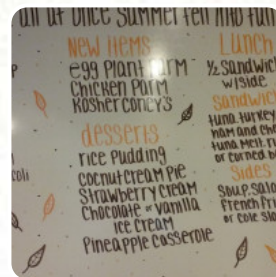 all at once summer fell into
New Items
egg Plant Parm
Chicken Parm
Kosher Coney's
desserts
rice Pudding
Coconut cream Pie
Strawberry Cream
Chocolate or vanilla
Ice Cream
Pineapple Casserole
Lunch
½ Sandwich
w/side
Sandwich
tuna turkey
ham and
tuna melt
or corned
Sides
Soup, Sala
French fri
or Cole Sla